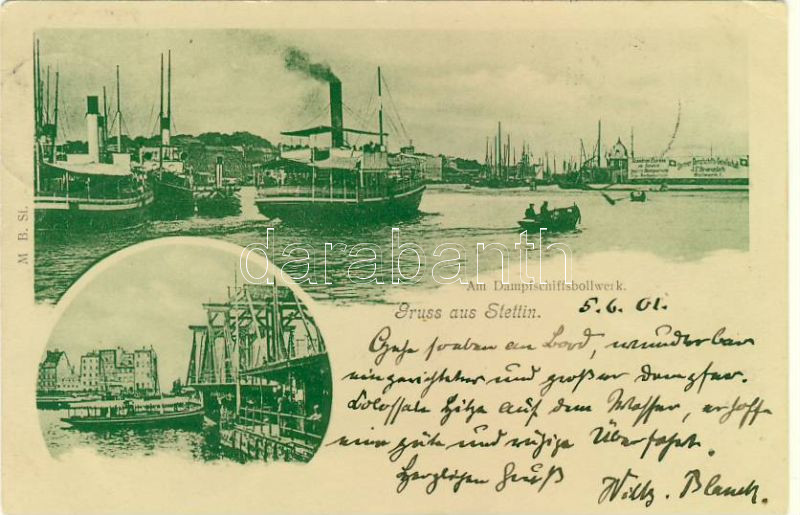 M. B. St.
darabanth
Am Dampfschiffsbollwerk.
Gruss aus Stettin.
5.6.01.
Gehe soeben an Bord, wunderbar
eingerichteter und großer Dampfer.
Colossale Hitze auf dem Wasser, erhoffe
eine gute und ruhige Überfahrt.
Herzlichen Gruß
Blanck.